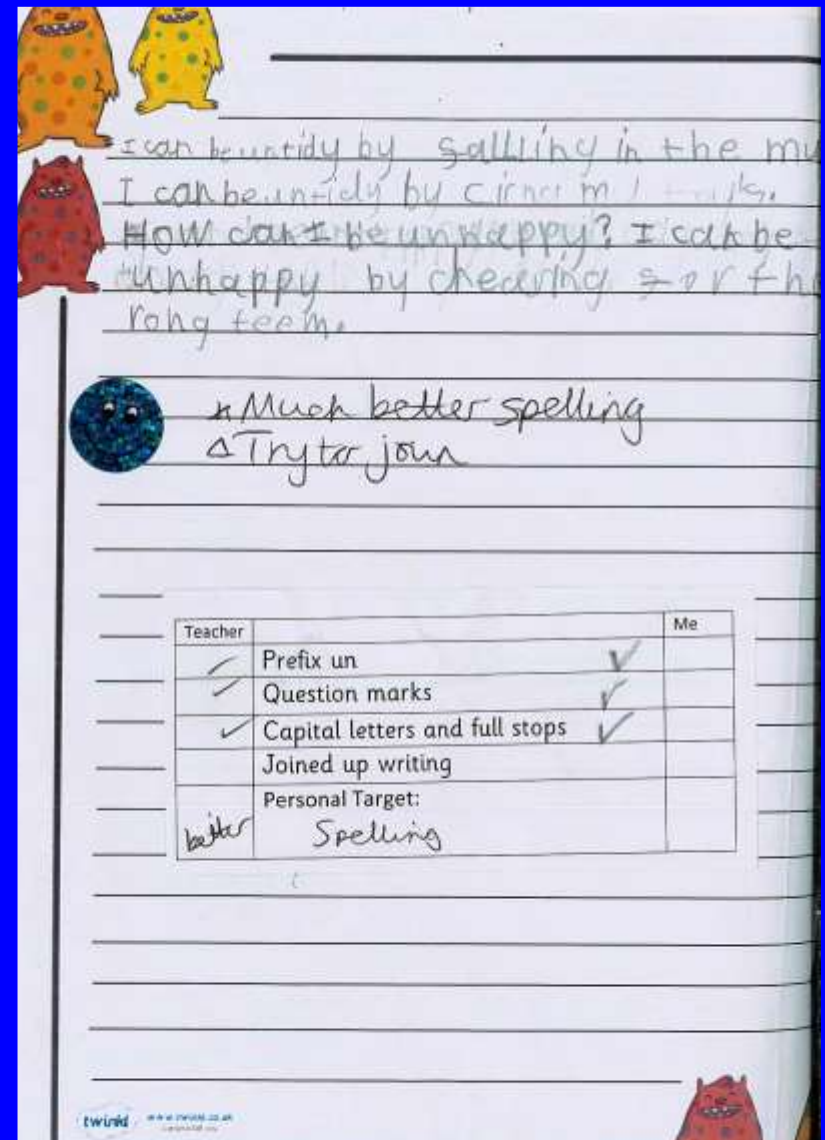 I can be untidy by salling in the mu
I can be untidy by
How can I be unhappy? I can be
unhappy by chearing for the
rong teem.
Much better spelling
Try to join
Teacher Me
Prefix un
Question marks
Capital letters and full stops
Joined up writing
Personal Target:
better Spelling
twinkl